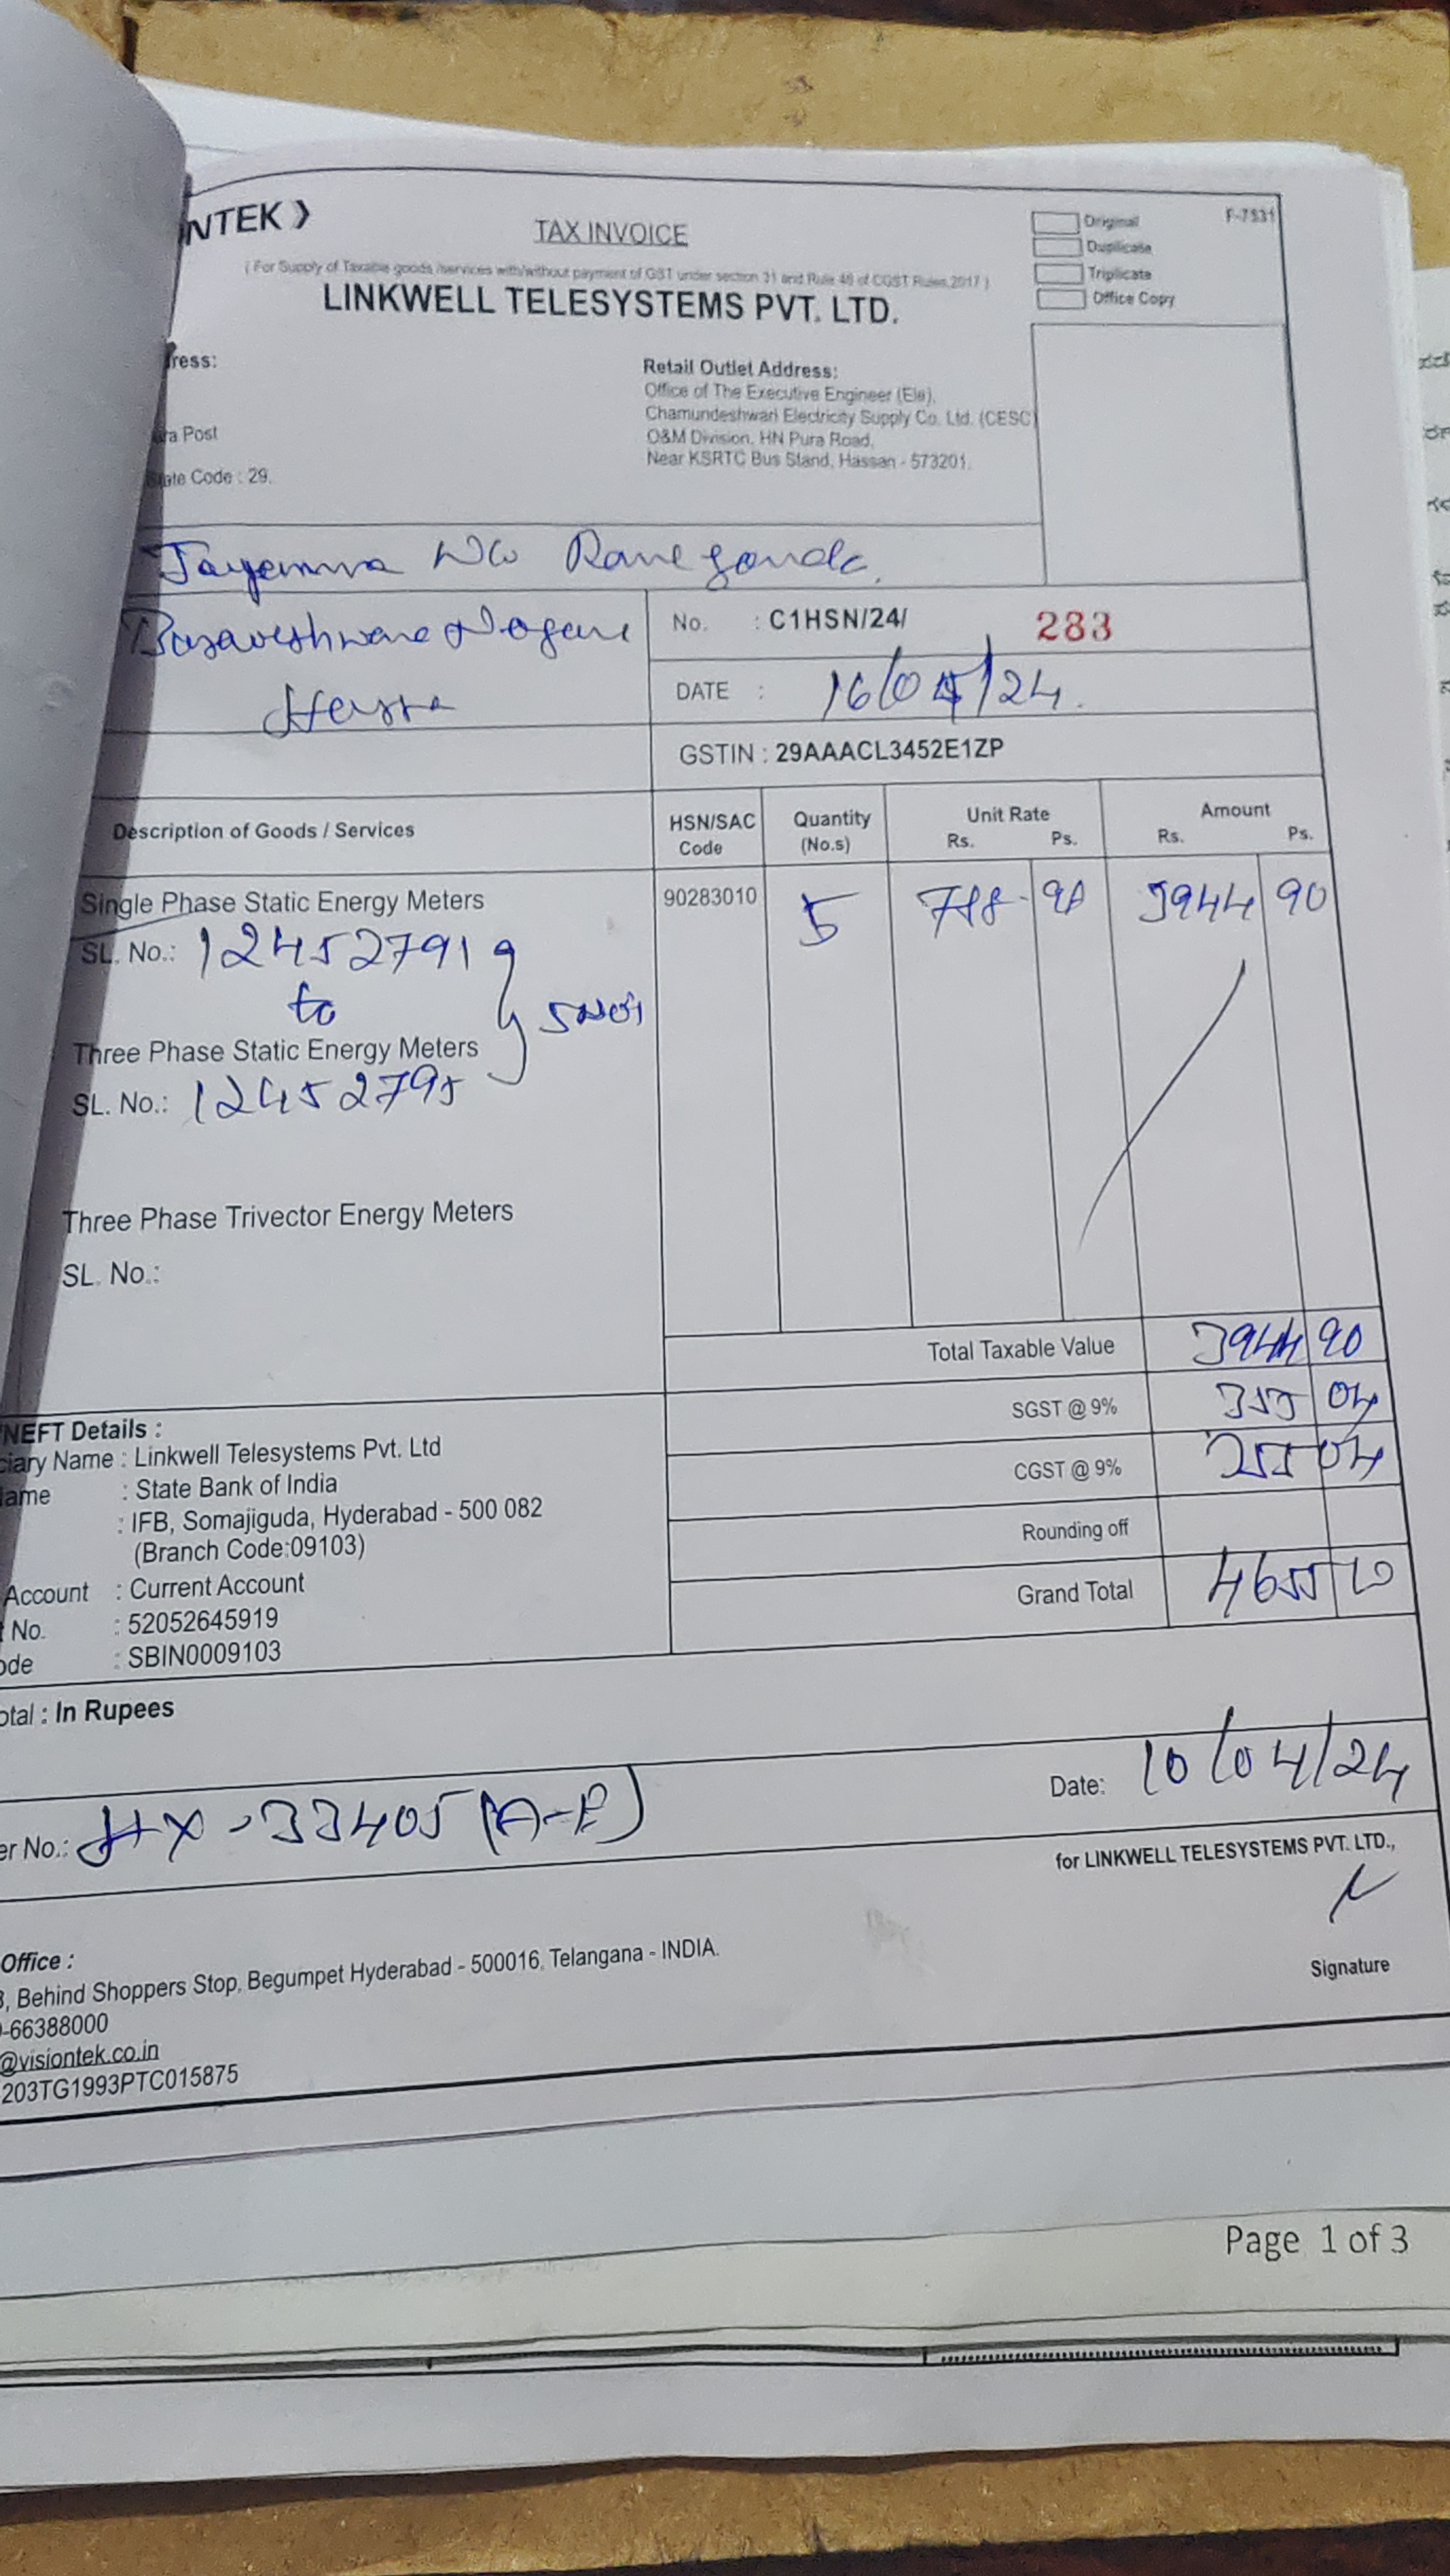 NTEK
TAX INVOICE
Original
F-7531
Duplicate
Triplicate
Office Copy
( For Supply of Taxable goods /services with/without payment of GST under section 31 and Rule 46 of CGST Rules,2017 )
LINKWELL TELESYSTEMS PVT. LTD.
ress:
Retail Outlet Address:
Office of The Executive Engineer (Ele),
Chamundeshwari Electricity Supply Co. Ltd. (CESC)
ra Post
O&M Division, HN Pura Road,
Near KSRTC Bus Stand, Hassan - 573201.
ate Code : 29.
Jayamma W/o
No. : C1HSN/24/ 283
DATE : 16/04/24.
GSTIN : 29AAACL3452E1ZP
Description of Goods / Services
HSN/SAC Code
Quantity (No.s)
Unit Rate Rs. Ps.
Amount Rs. Ps.
Single Phase Static Energy Meters 90283010 5 3944 90
SL. No.: 12452791
to
Three Phase Static Energy Meters
SL. No.: 12452795
Three Phase Trivector Energy Meters
SL. No.:
Total Taxable Value 3944 90
SGST @ 9% 355 04
CGST @ 9% 04
Rounding off
Grand Total 4655
NEFT Details :
ciary Name : Linkwell Telesystems Pvt. Ltd
ame : State Bank of India
: IFB, Somajiguda, Hyderabad - 500 082
(Branch Code:09103)
Account : Current Account
No. : 52052645919
ode : SBIN0009103
otal : In Rupees
er No.: HX-33405 (A-E)
Date: 10/04/24
for LINKWELL TELESYSTEMS PVT. LTD.,
Signature
Office :
, Behind Shoppers Stop, Begumpet Hyderabad - 500016, Telangana - INDIA.
-66388000
@visiontek.co.in
203TG1993PTC015875
Page 1 of 3